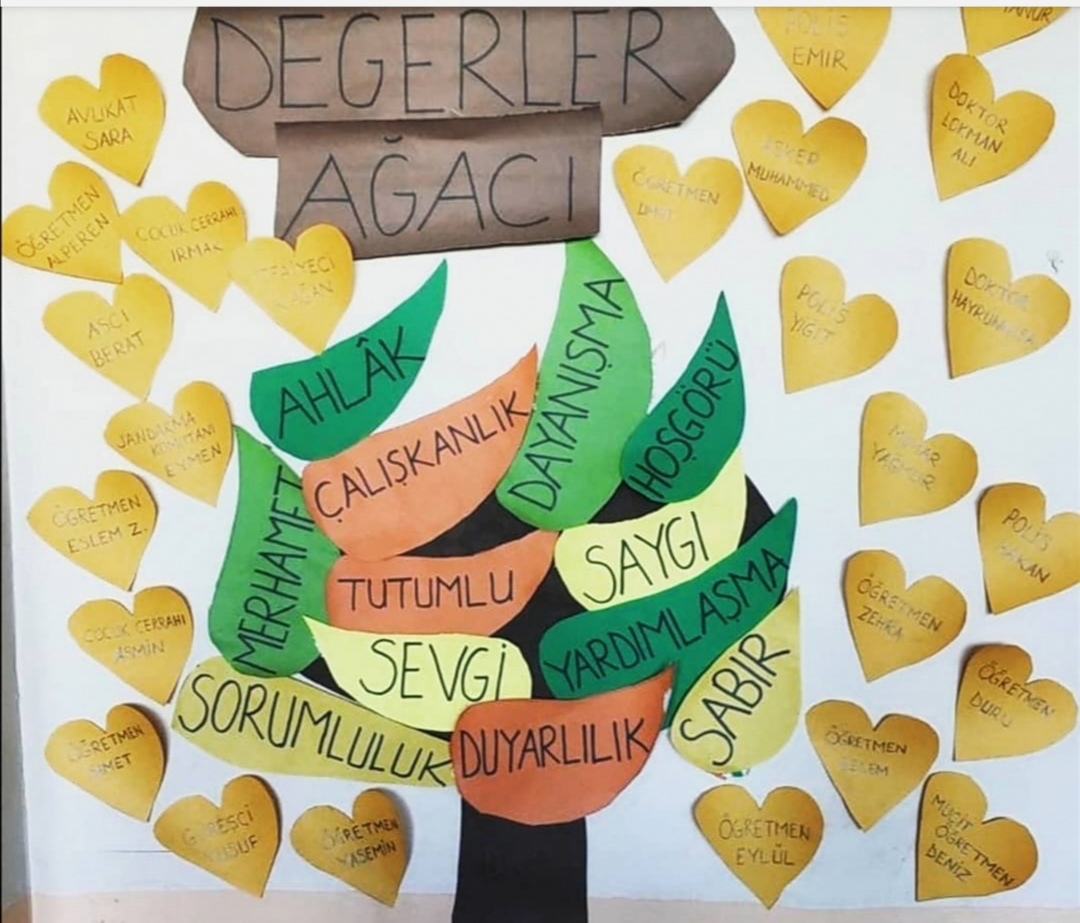 DEĞERLER
AĞACI
AVUKAT
SARA
ÖĞRETMEN
ALPEREN
ÇOCUK CERRAHI
IRMAK
İTFAİYECİ
ÇAĞAN
AŞÇI
BERAT
JANDARMA
KOMUTANI
EYMEN
ÖĞRETMEN
ESLEM Z.
ÇOCUK CERRAHI
ASMİN
ÖĞRETMEN
GÜREŞÇİ
YUSUF
ÖĞRETMEN
YASEMİN
AHLÂK
ÇALIŞKANLIK
DAYANIŞMA
HOŞGÖRÜ
MERHAMET
TUTUMLU
SAYGI
YARDIMLAŞMA
SEVGİ
SABIR
SORUMLULUK
DUYARLILIK
POLİS
EMİR
DOKTOR
LOKMAN
ALİ
ASKER
MUHAMMED
ÖĞRETMEN
UMUT
POLİS
YİĞİT
DOKTOR
MİMAR
YAĞMUR
POLİS
HAKAN
ÖĞRETMEN
ZEHRA
ÖĞRETMEN
DURU
ÖĞRETMEN
ÖĞRETMEN
EYLÜL
MUCİT
ÖĞRETMEN
DENİZ